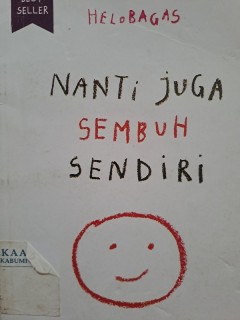 SELLER
HELOBAGAS
NANTI JUGA
SEMBUH
SENDIRI
KAA
KABUMI